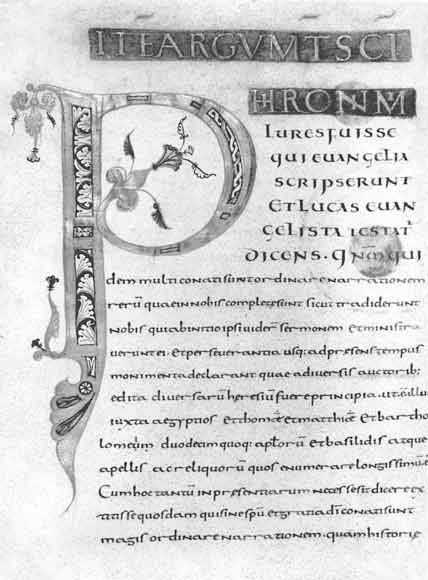 ITE ARGUMT SCI
HIRONM
PLURES FUISSE
QUI EUANGELIA
SCRIPSERUNT
ET LUCAS EUAN
GELISTA TESTAT̄
DICENS · QNM QUI
dem multi conati sunt ordinare narrationem
rerū quae in nobis completę sunt sicut tradiderunt
nobis qui ab initio ipsi uiderunt sermonem et ministra
uerunt ei · et perseuerantia usq; ad presens tempus
monimenta declarant quae a diuersis auctorib;
edita diuersarū heresiū fuere principia · ut ē illud
iuxta aegyptios et thomā et matthiā et bartho
lomeum duodecim quoq; aplorū et basilidis atque
apellis ac reliquorū quos enumerare longissimū ē
Cum hoc tantū in presentiarum necesse sit dicere ex
titisse quosdam qui sine spū et gratia dī conati sunt
magis ordinare narrationem quam historię